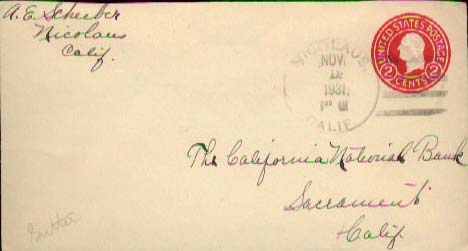 A. E. Scheiber
Nicolaus
Calif.
NICOLAUS
NOV.
1931
AM
CALIF.
UNITED STATES POSTAGE
2 CENTS 2
The California National Bank
Sacramento
Calif
Sutter